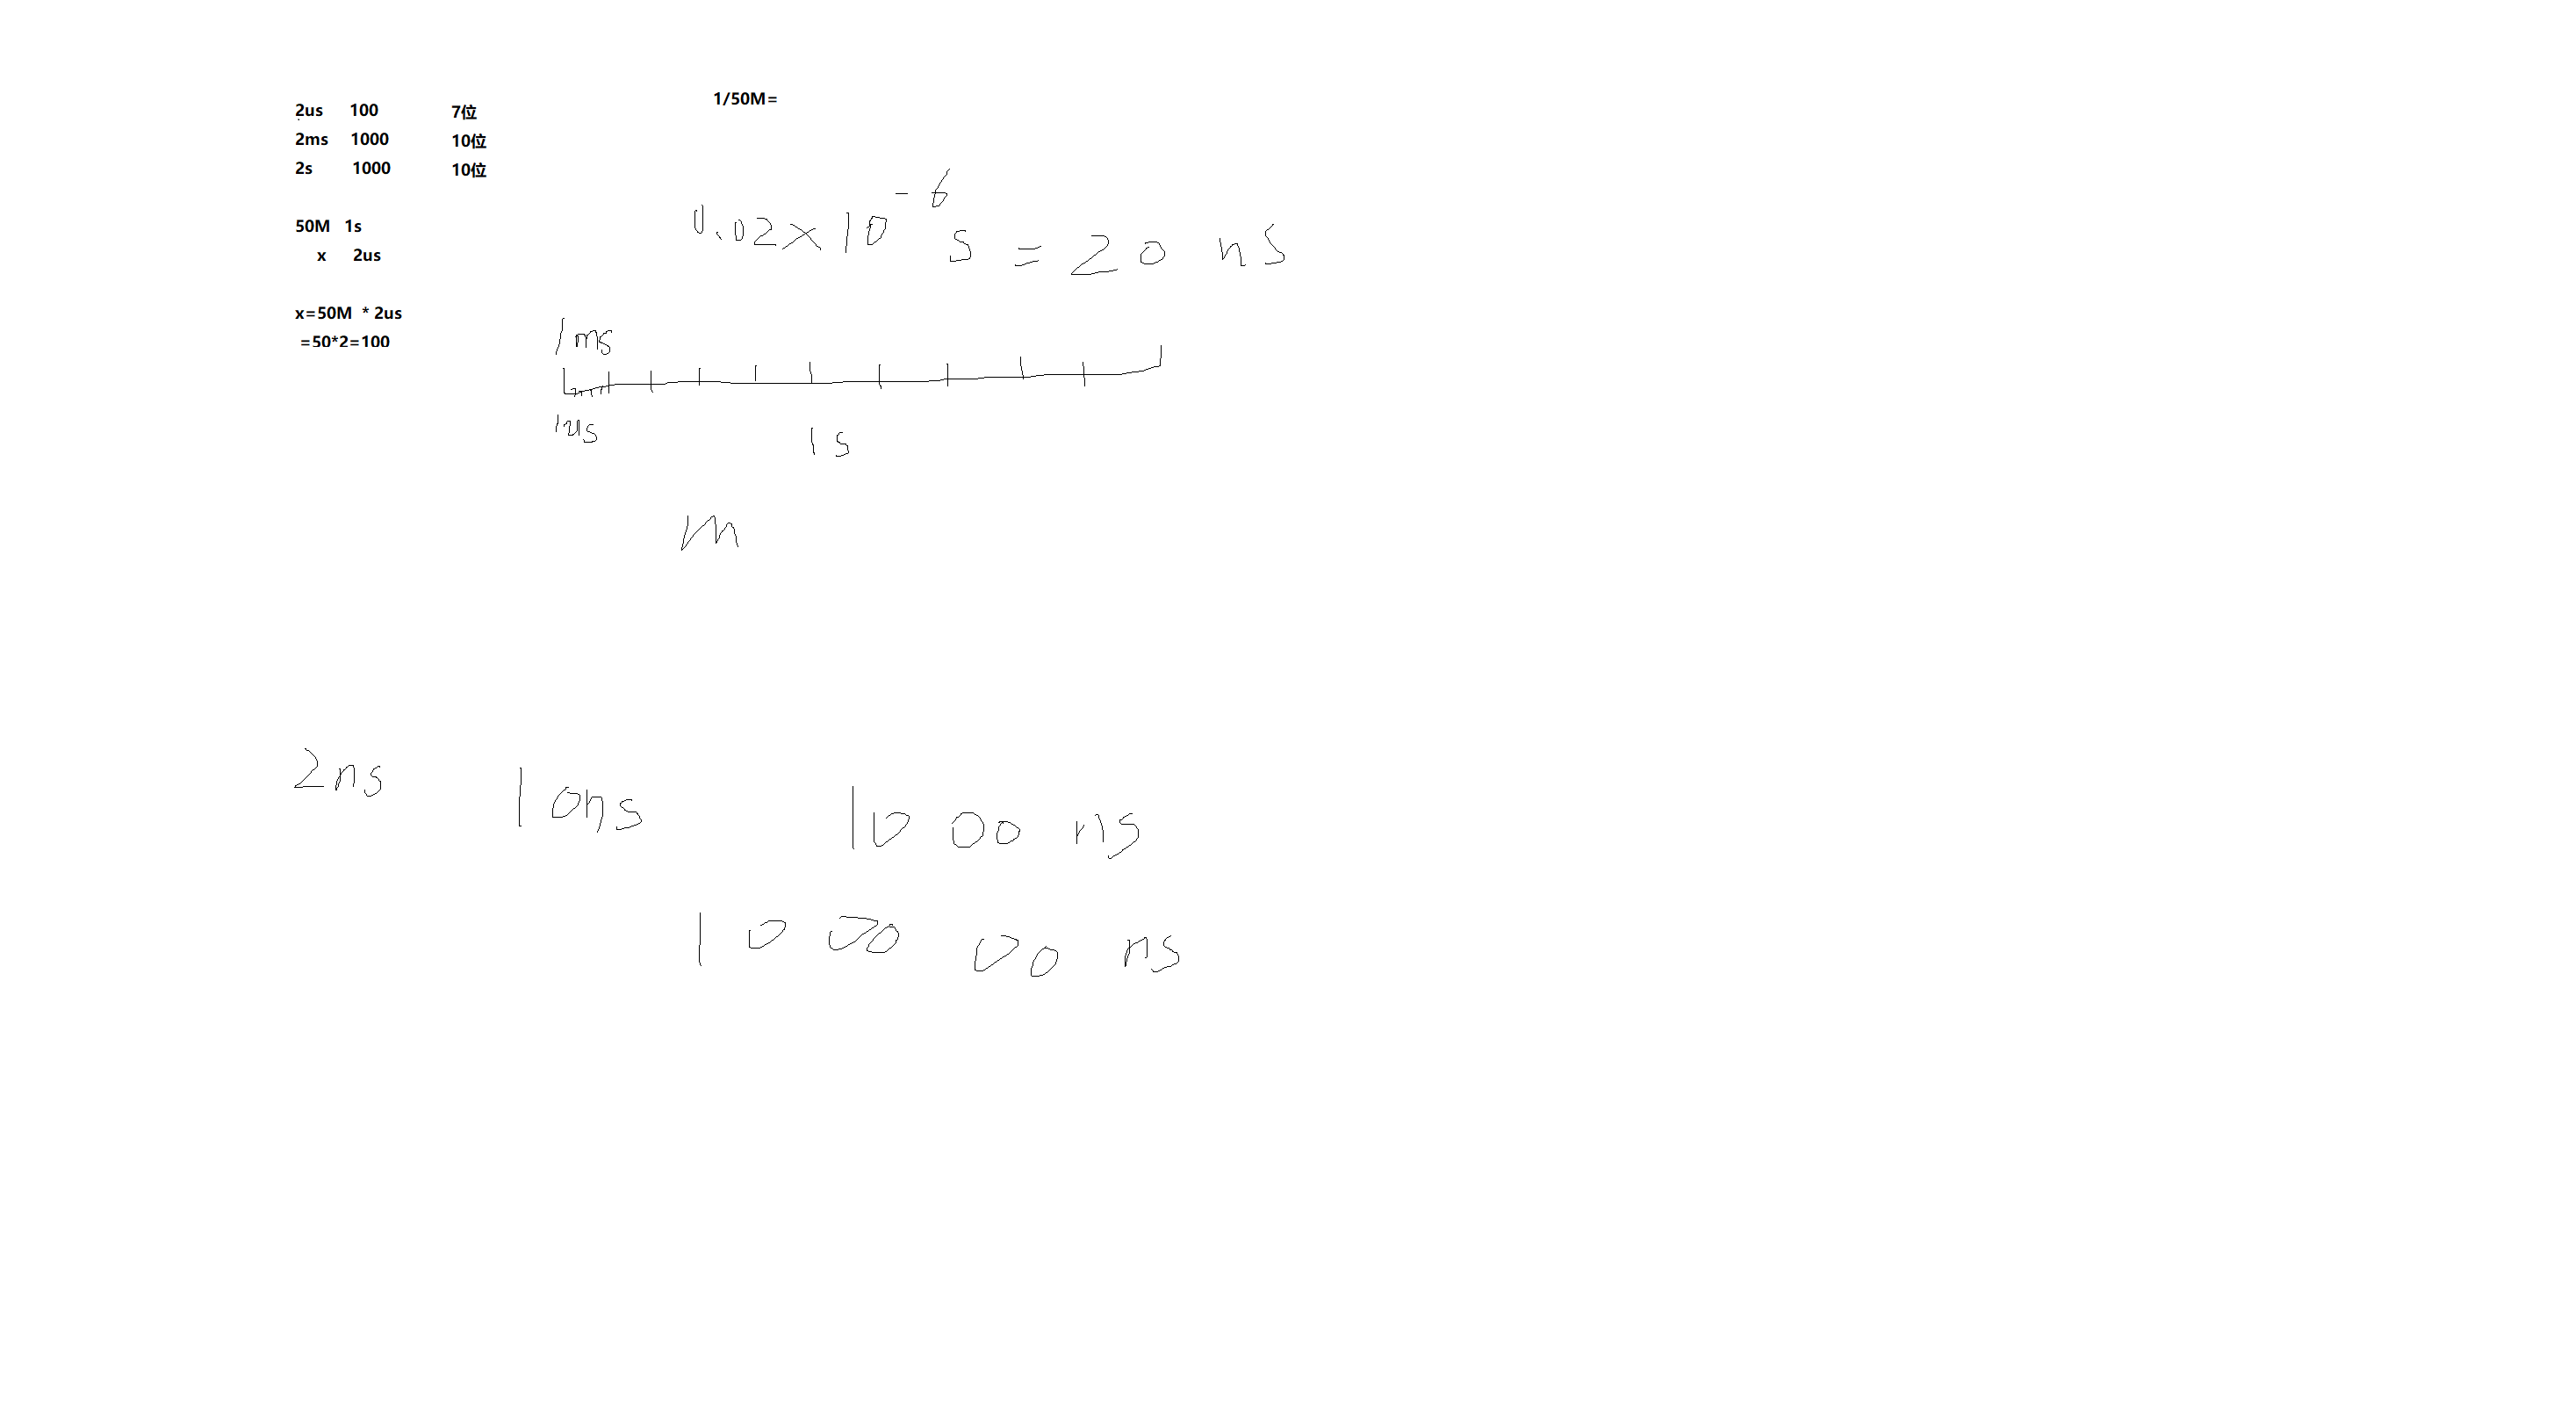 2us 100 7位
2ms 1000 10位
2s 1000 10位
50M 1s
x 2us
x=50M * 2us
=50*2=100
1/50M=
0.02×10⁻⁶s = 20 ns
1ms
1us
1s
m
2ns 10ns 1000 ns
100000 ns